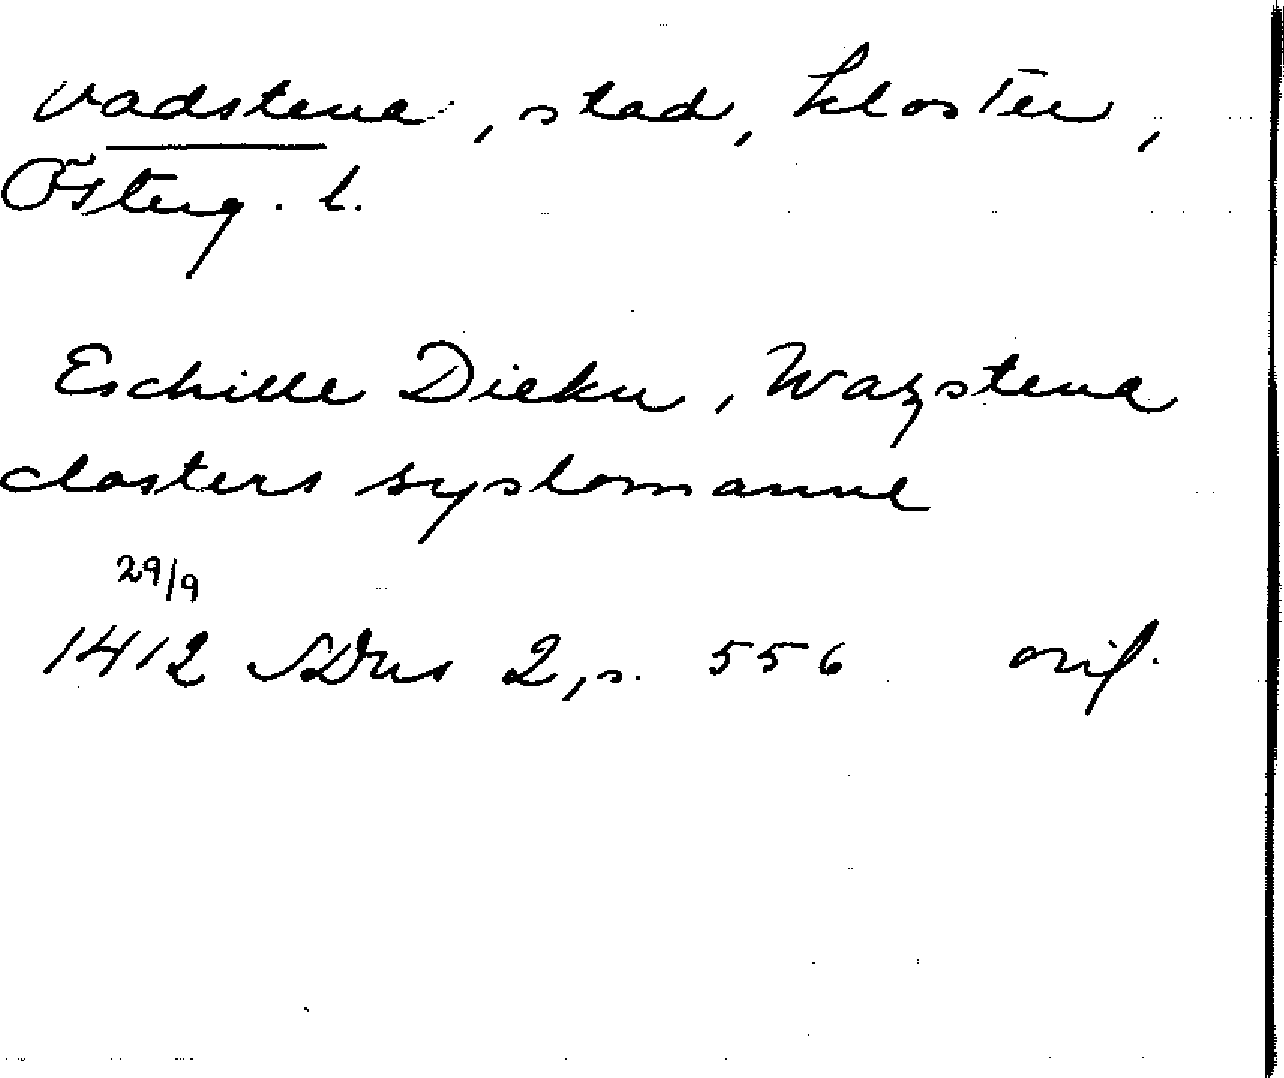 Vadstena, stad, kloster,
Österg. l.
Eschille Diekn, Wazstena
closters syslomanne
29/9
1412 SDns 2, s. 556 orig.